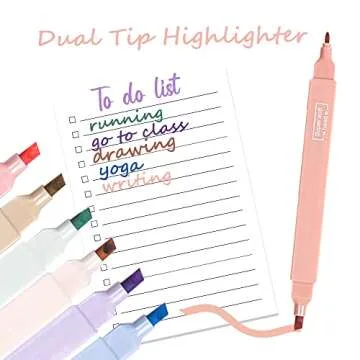 Dual Tip Highlighter
To do list
running
go to class
drawing
yoga
writing